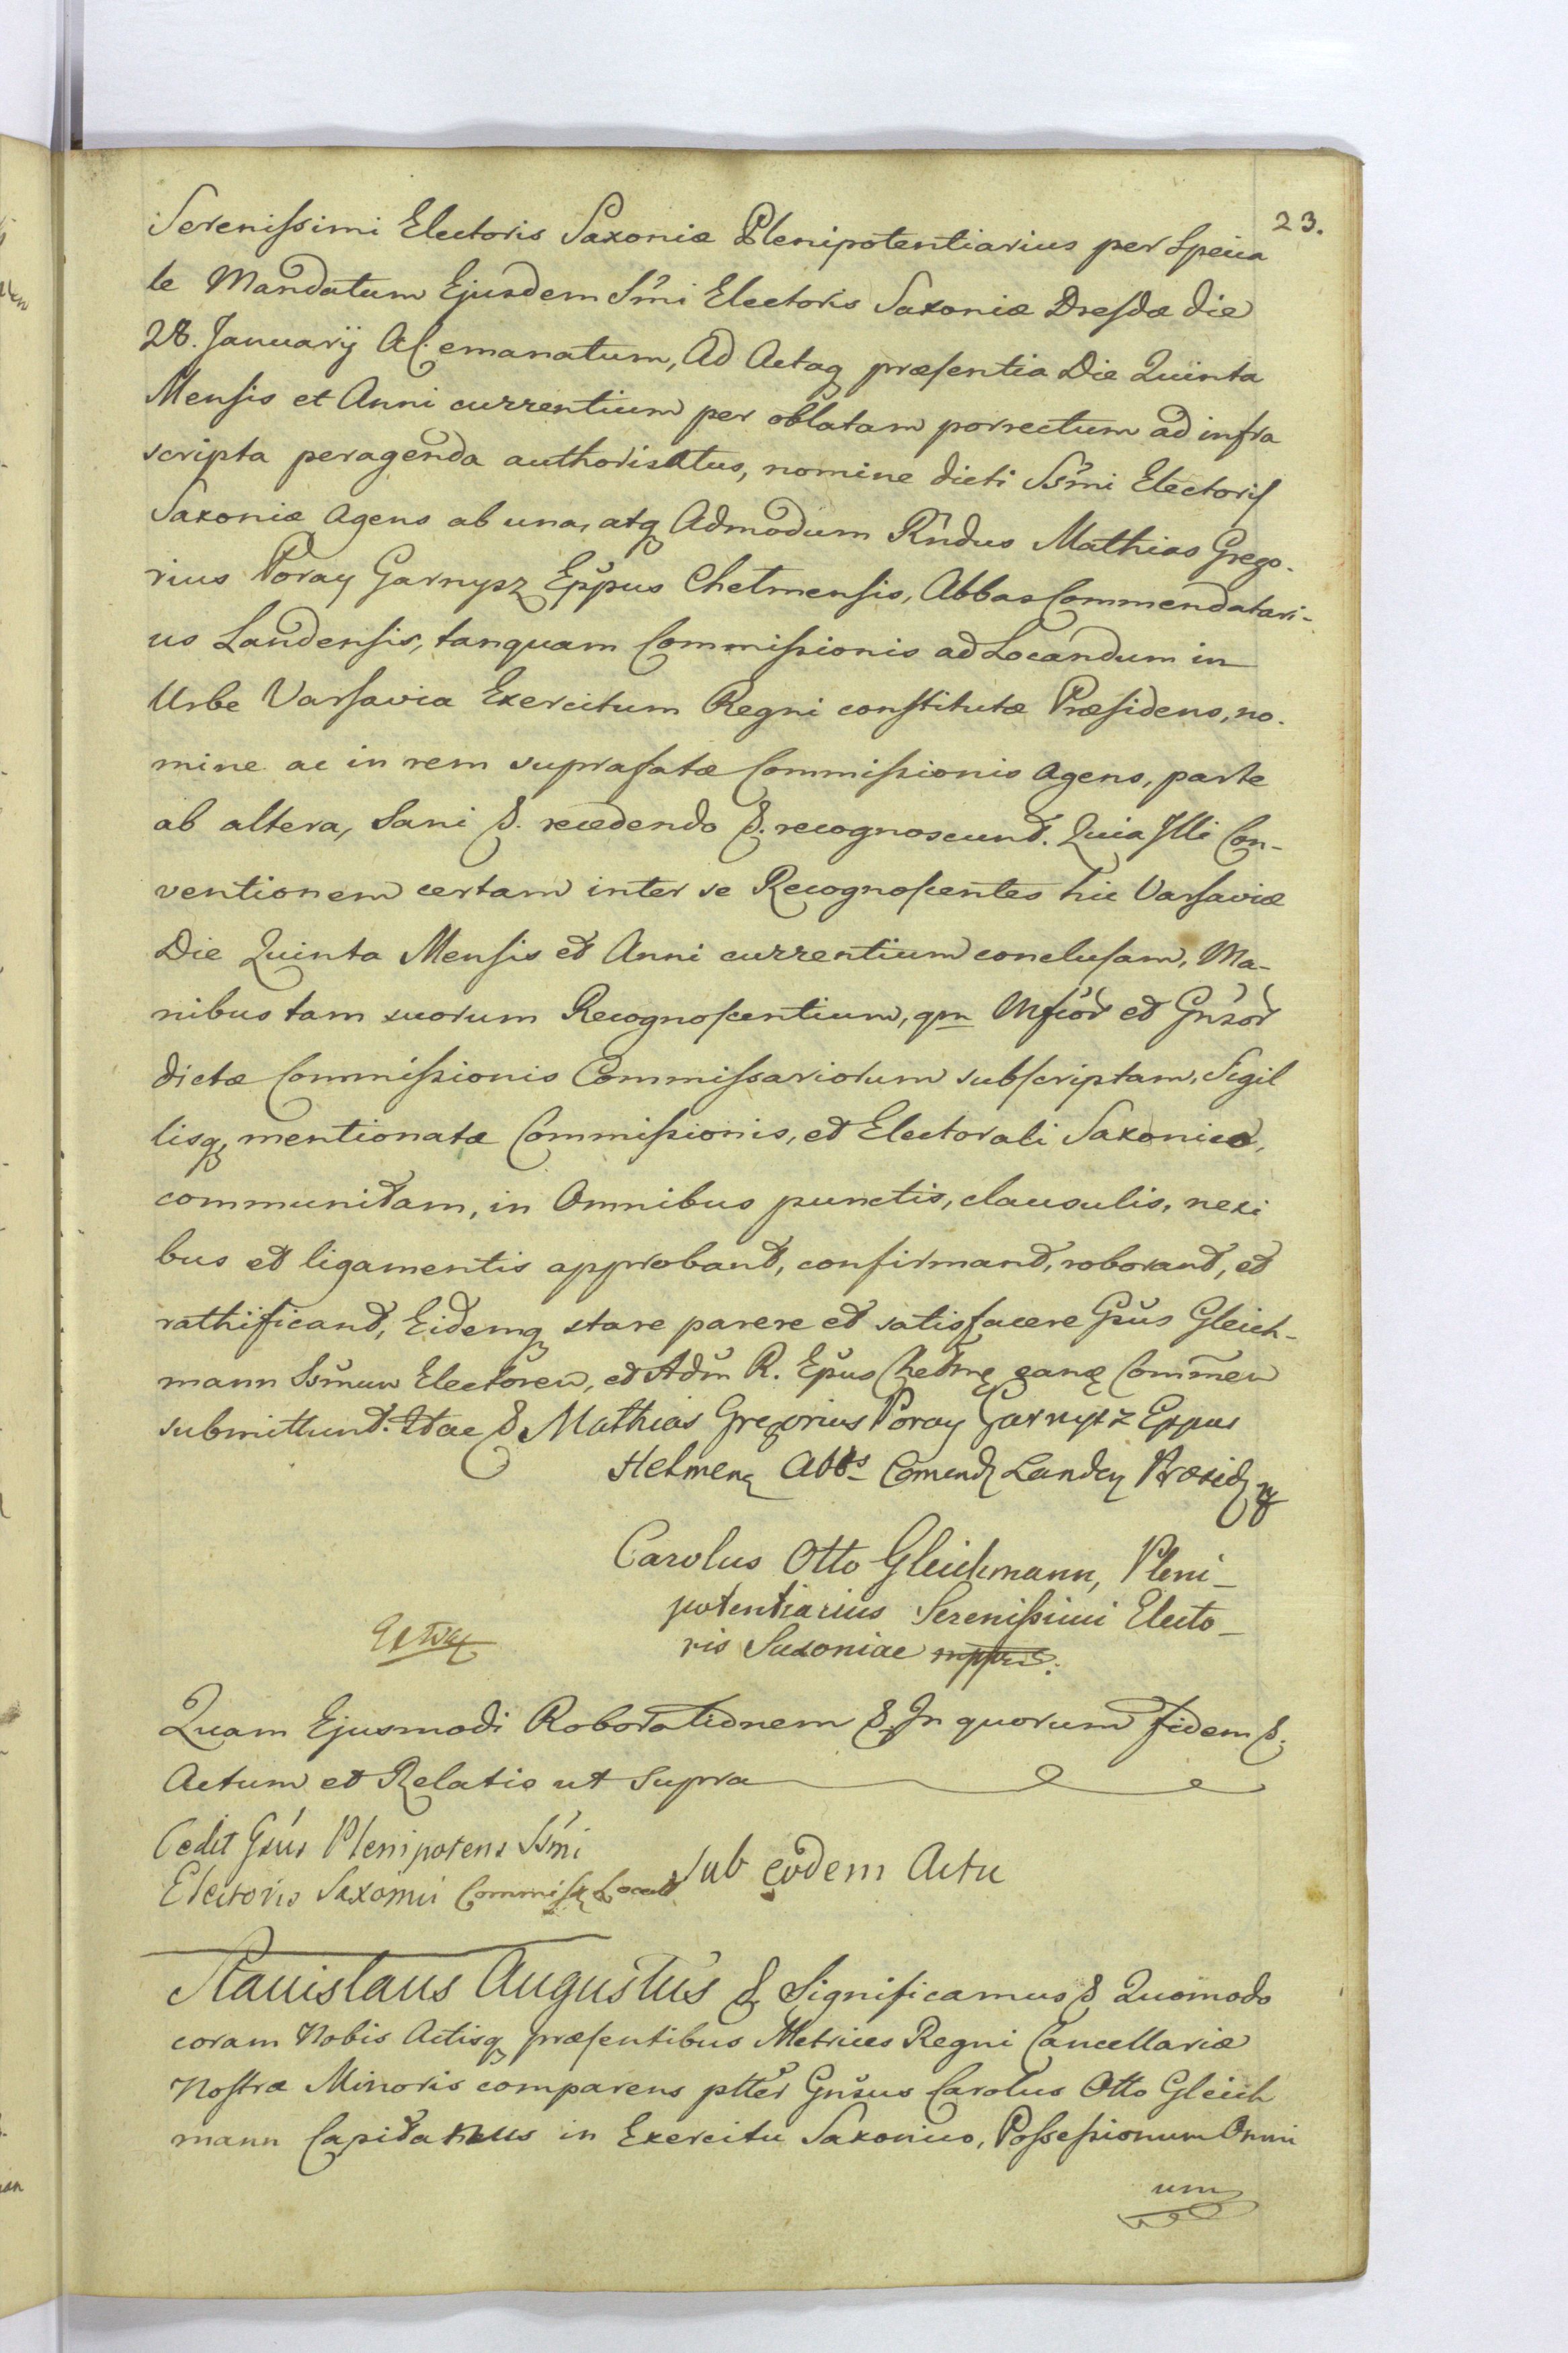 23.
Serenissimi Electoris Saxoniæ Plenipotentiarius per Specia
le Mandatum Ejusdem Sm̃i Electoris Saxoniæ Dresdæ die
28. Januarij Ac. emanatum, Ad Actaq præsentia Die Quinta
Mensis et Anni currentium per oblatam porrectum ad infra
scripta peragenda authorisatus, nomine dicti Ssm̃i Electoris
Saxoniæ Agens ab una, atq Admodum Rñdus Mathias Grego-
rius Poray Garnysz Eppus Chelmensis, Abbas Commendatari-
us Landensis, tanquam Commissionis ad Locandum in
Urbe Varsavia Exercitum Regni constitutæ Præsidens, no-
mine ac in rem suprafatæ Commissionis Agens, parte
ab altera, Sani &. recedendo &. recognoscunt. Quia Illi Con-
ventionem certam inter se Recognoscentes hic Varsaviæ
Die Quinta Mensis et Anni currentium conclusam, Ma-
nibus tam suorum Recognoscentium, qm Mfcor et Gnsor
dictæ Commissionis Commissariorum subscriptam, Sigil
lisq mentionatæ Commissionis, et Electorali Saxonico,
communitam, in Omnibus punctis, clausulis, nexi
bus et ligamentis approbant, confirmant, roborant, et
rathificant, Eidemq stare parere et satisfacere Gsus Gleich-
mann Ssmum Electorem, et Adm R. Epus Chelmę eanę Com̃en
submittunt. Itae & Mathias Gregorius Poray Garnysz Eppus
Helmenę Abbs Comendę Landeń Præsidę
Carolus Otto Gleichmann, Pleni-
potentiarius Serenissimi Electo-
ris Saxoniae mppria.
Quam Ejusmodi Roborationem &. In quorum fidem &.
Actum et Relatio ut Supra
Cedit Gsus Plenipotens Ssm̃i
Electoris Saxonii Commisę Locad
Sub eodem Actu
Stanislaus Augustus & Significamus & Quomodo
coram Nobis Actisq præsentibus Metrices Regni Cancellariæ
Nostræ Minoris comparens ptter Gnsus Carolus Otto Gleich
mann Capitaneus in Exercitu Saxonico, Possessionum Omni
um